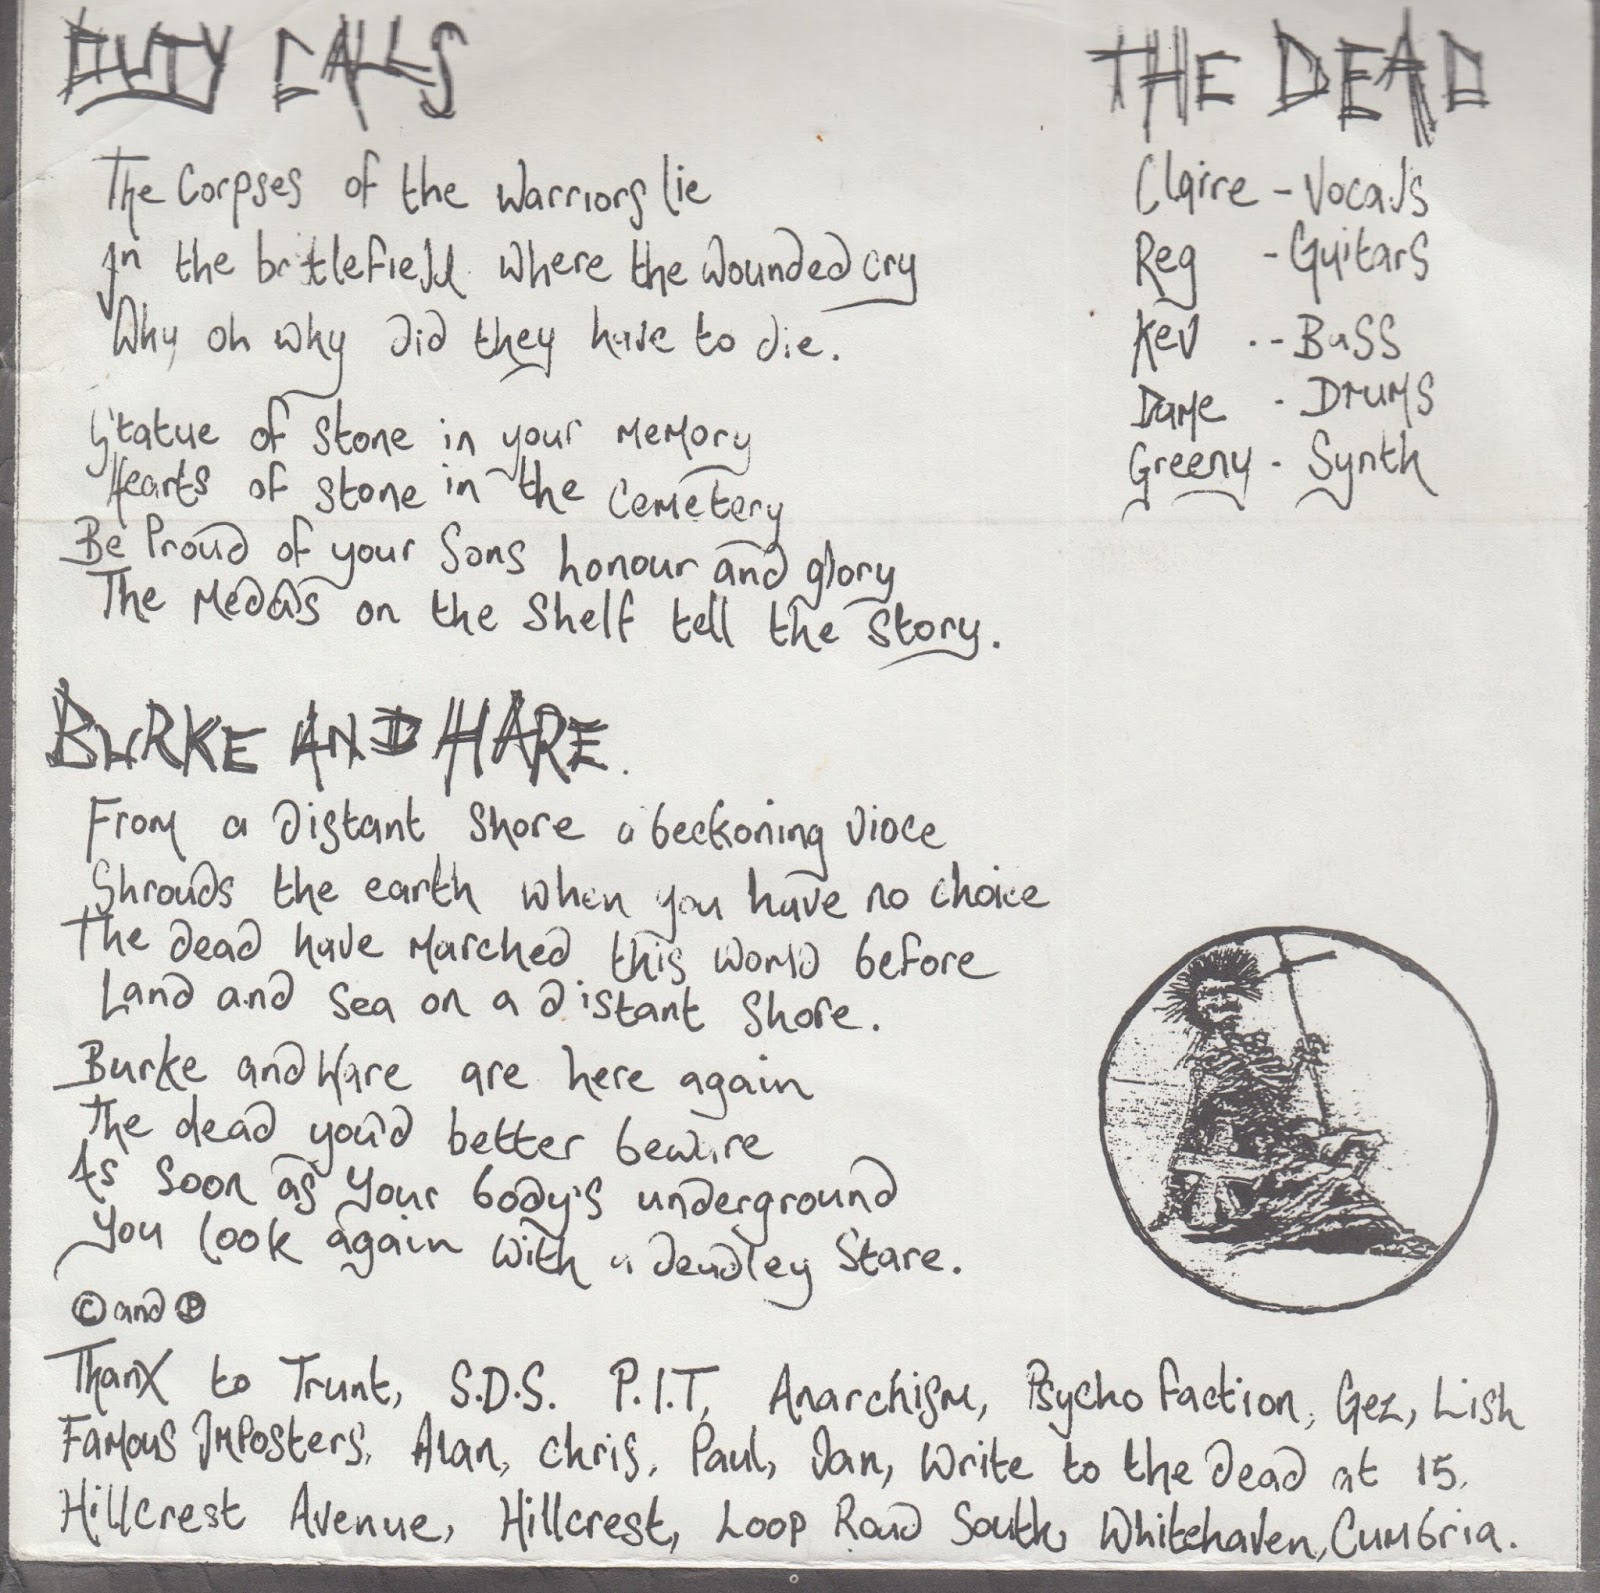 DUTY CALLS
The Corpses of the Warriors lie
In the battlefield where the wounded cry
Why oh why did they have to die.
Statue of stone in your memory
Hearts of stone in the Cemetery
Be Proud of your Sons honour and glory
The Medals on the Shelf tell the story.
BURKE AND HARE.
From a distant shore a beckoning vioce
Shrouds the earth when you have no choice
The dead have marched this world before
Land and Sea on a distant Shore.
Burke and Hare are here again
The dead you'd better beware
As soon as your body's underground
You look again with a deadley Stare.
© and ℗
Thanx to Trunt, S.D.S. P.I.T, Anarchism, Psycho Faction, Gez, Lish
Famous Imposters, Alan, Chris, Paul, Jan, Write to the Dead at 15.
Hillcrest Avenue, Hillcrest, Loop Road South, Whitehaven, Cumbria.
THE DEAD
Claire - Vocals
Reg - Guitars
Kev - Bass
- Drums
Greeny - Synth